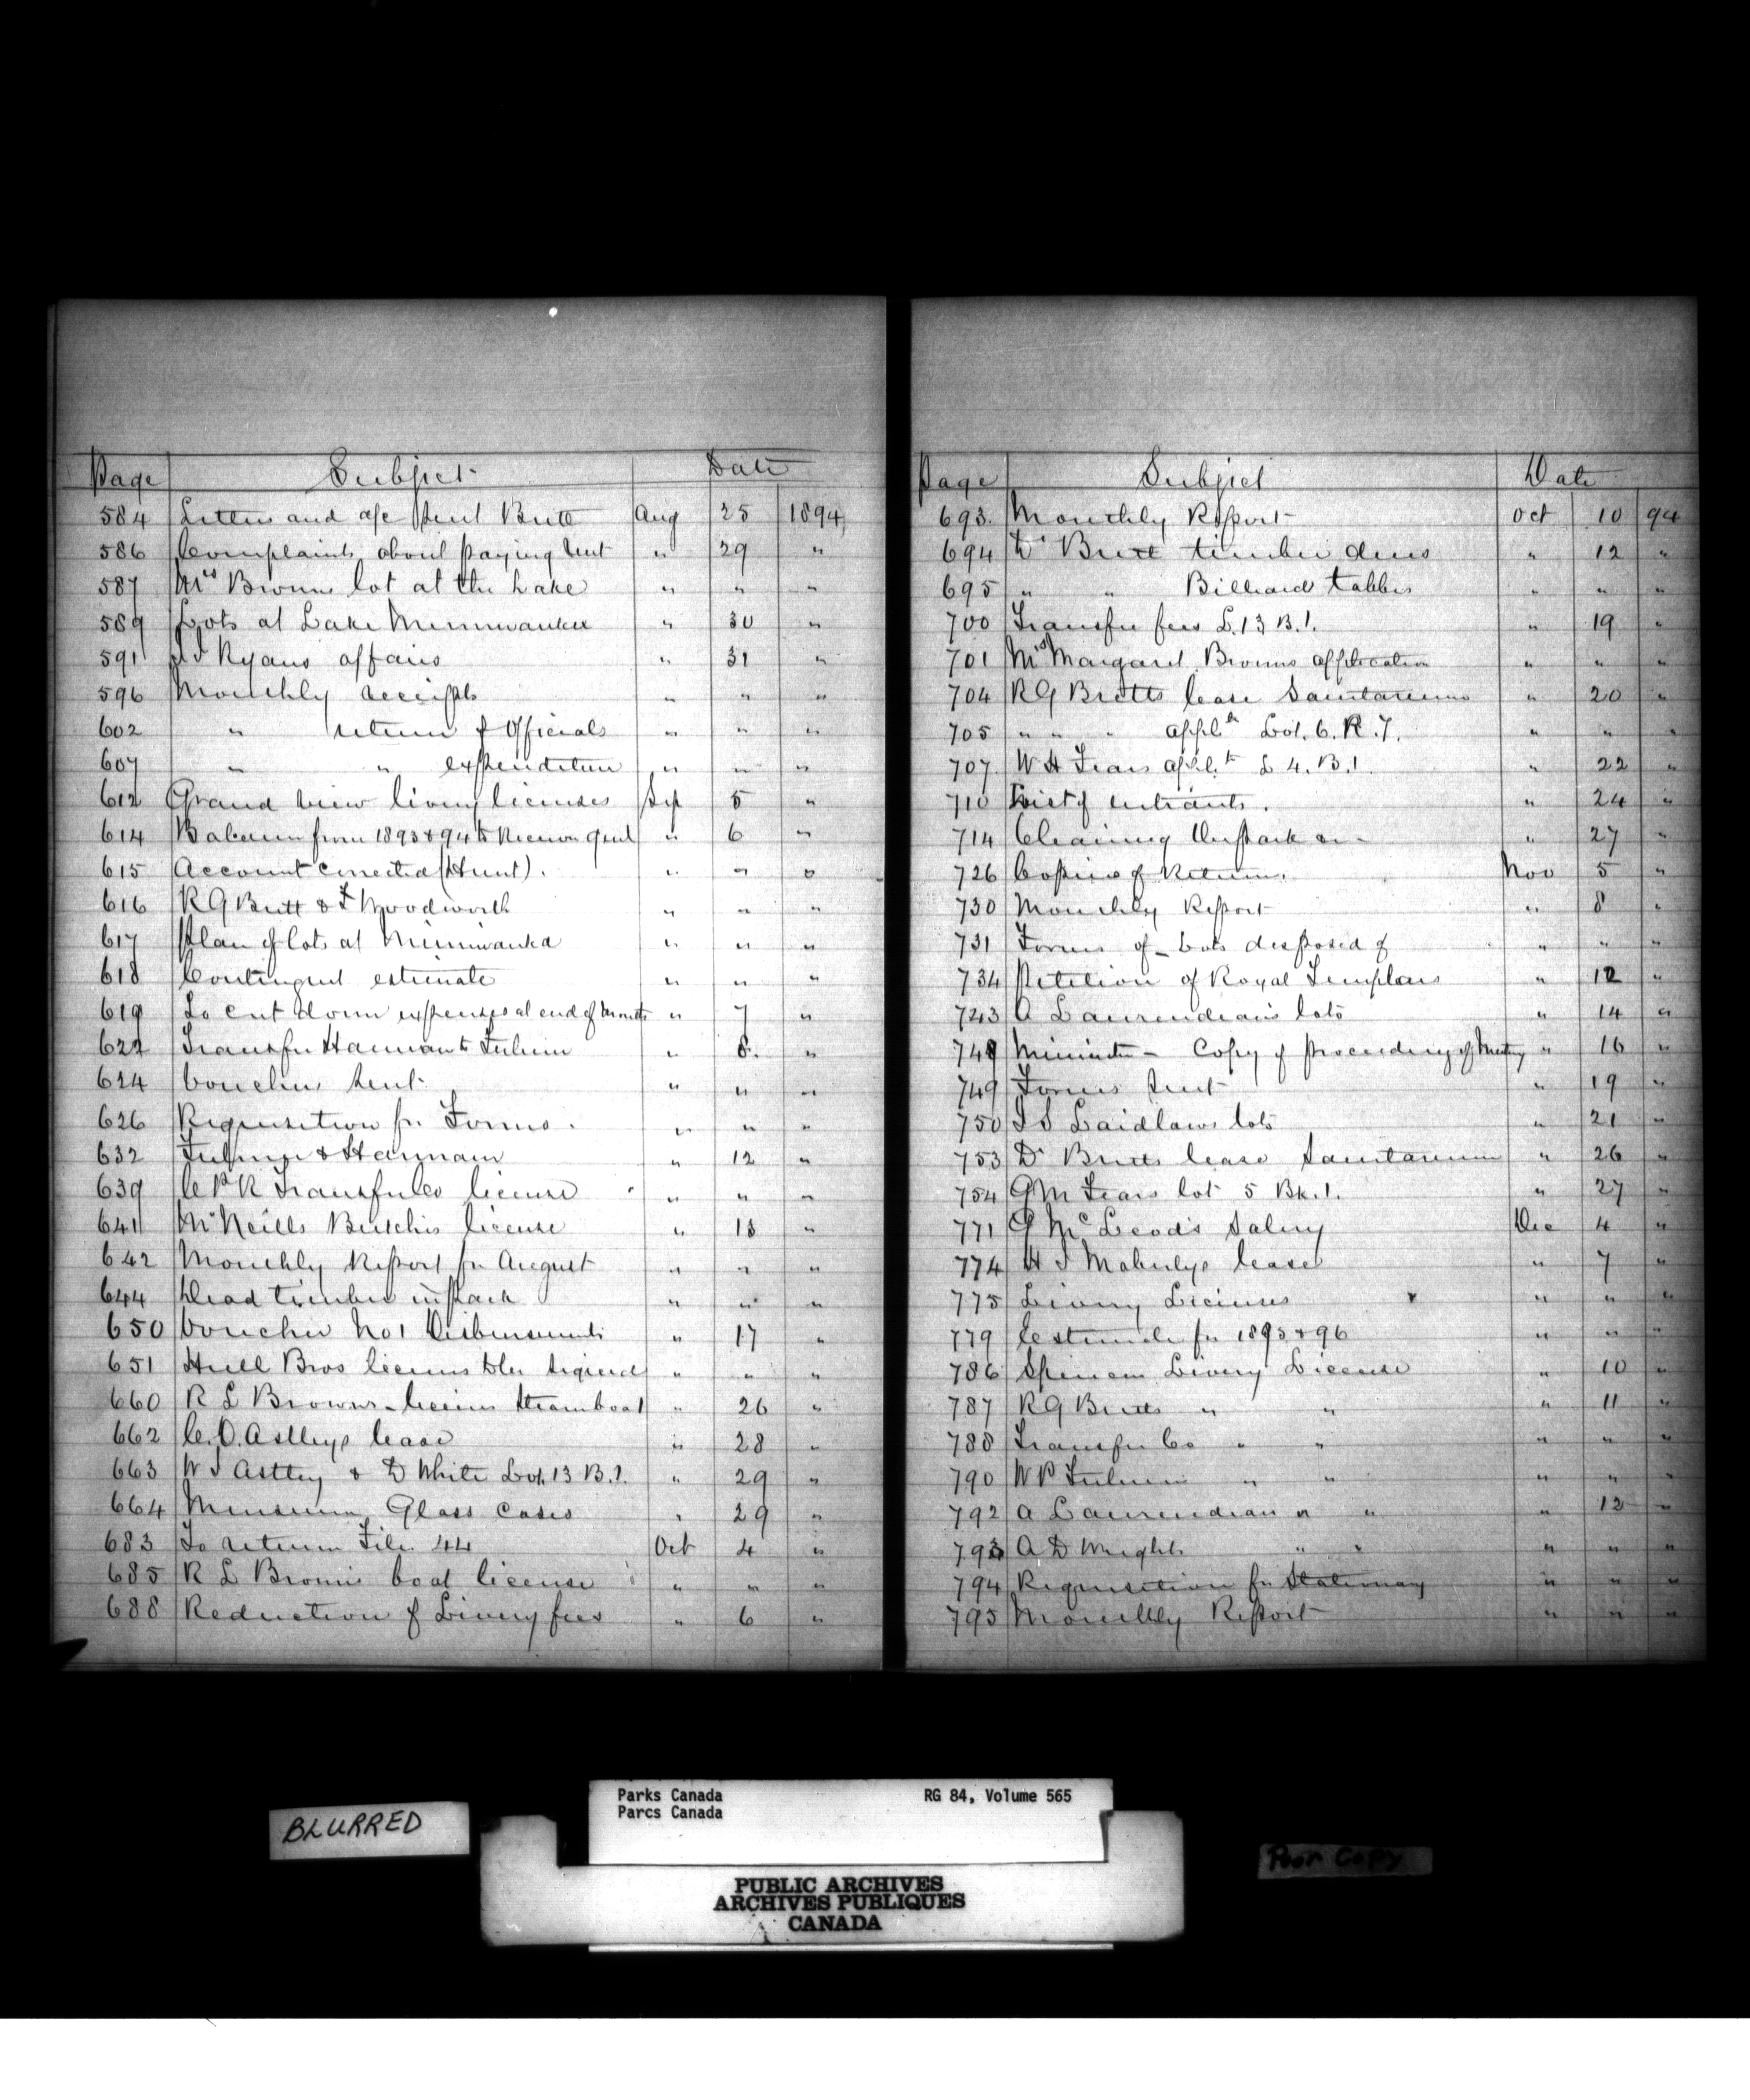 Page Subject Date
584 Letters and a/c sent Brett Aug 25 1894
586 Complaints about paying rent " 29 "
587 Mrs Browns lot at the Lake " " "
589 Lots at Lake Minniwanka " 30 "
591 Ryans affairs " 31 "
596 Monthly receipts " " "
602 " return of Officials " " "
607 " " expenditure " " "
612 Grand view livery licenses Sep 5 "
614 Balance from 1893 & 94 to Receiver Genl " 6 "
615 Account corrected (Hunt). " " "
616 R G Brett & F Woodworth " " "
617 Plan of lots at Minniwanka " " "
618 Contingent estimate " " "
619 To cut down expenses at end of Month " 7 "
622 Transfer Hannan to Fulmer " 8. "
624 Voucher sent. " " "
626 Requisition for Forms. " " "
632 Fulmer & Hannan " 12 "
639 C P R Transfer Co license " " "
641 McNeills Butchers license " 13 "
642 Monthly Report for August " " "
644 Dead timber in park " " "
650 Voucher No 1 Disbursements " 17 "
651 Hull Bros license to be signed " " "
660 R L Browns license Steamboat " 26 "
662 C. D. Astleys lease " 28 "
663 W S Astley & D White Lot. 13 B.1. " 29 "
664 Museum Glass cases " 29 "
683 To return File 44 Oct 4 "
685 R L Browns boat license " " "
688 Reduction of Livery fees " 6 "
Page Subject Date
693. Monthly Report Oct 10 94
694 Dr Brett timber dues " 12 "
695 " " Billiard tables " " "
700 Transfer fees L. 13 B.1. " 19 "
701 Mrs Margaret Browns application " " "
704 R G Bretts lease Sanitarium " 20 "
705 " " " appln Lot. 6. R. 7. " " "
707. W H Fears appln L 4. B.1. " 22 "
710 List of entrants. " 24 "
714 Cleaning " 27 "
726 Copies of Returns. Nov 5 "
730 Monthly Report " 8 "
731 Forms of Lots disposed of " " "
734 Petition of Royal Templars " 12 "
743 A Laurendeau's lots " 14 "
748 Minister - Copy of proceedings of Meeting " 16 "
749 Forms sent " 19 "
750 Laidlaws lots " 21 "
753 Dr Bretts lease Sanitarium " 26 "
754 G M Fears lot 5 Bk. 1. " 27 "
771 G McLeod's Salary Dec 4 "
774 H lease " 7 "
775 Livery Licenses " " "
779 Estimate for 1895 & 96 " " "
786 Spencers Livery License " 10 "
787 R G Bretts " " " 11 "
788 Transfer Co " " " " "
790 W P Fulmer " " " " "
792 A Laurendeau " " " 12 "
793 A D Wright " " " " "
794 Requisition for Stationary " " "
795 Monthly Report " " "
BLURRED
Parks Canada RG 84, Volume 565
Parcs Canada
PUBLIC ARCHIVES
ARCHIVES PUBLIQUES
CANADA
Poor Copy